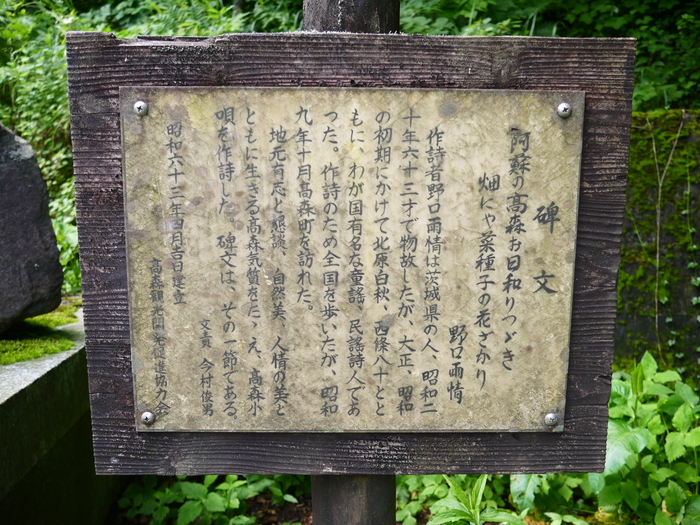 碑文
阿蘇の高森お日和りつゞき
畑にや菜種子の花ざかり
野口雨情
作詩者野口雨情は茨城県の人、昭和二
十年六十三才で物故したが、大正、昭和
の初期にかけて北原白秋、西條八十とと
もに、わが国有名な童謡、民謡詩人であ
った。作詩のため全国を歩いたが、昭和
九年十月高森町を訪れた。
地元有志と懇談、自然美、人情の美と
ともに生きる高森気質をたゝえ、高森小
唄を作詩した。碑文は、その一節である。
文責 今村俊男
昭和六十三年四月吉日建立
高森観光開発促進協力会